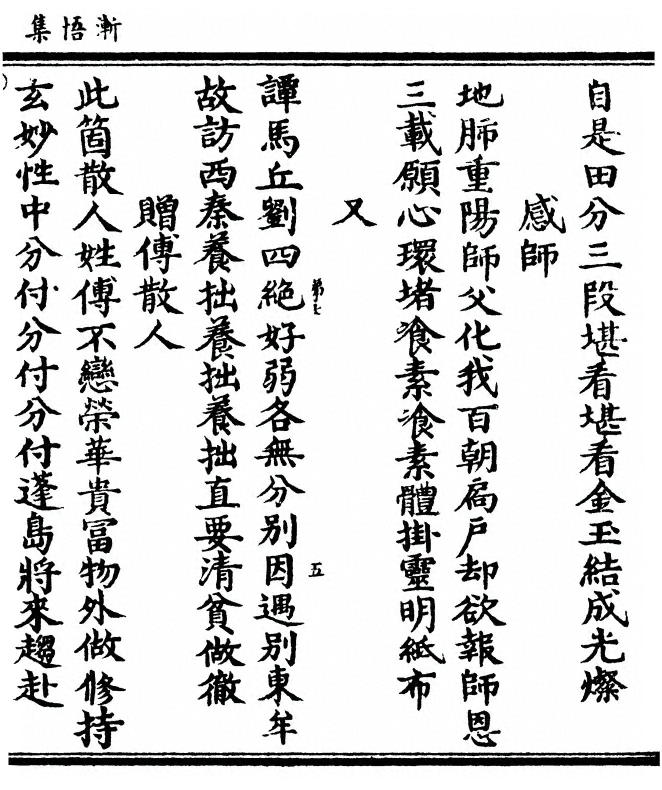 漸悟集
自是田分三段堪看堪看金玉結成光燦
感師
地肺重陽師父化我百朝扃戶却欲報師恩
三載願心環堵飡素飡素體掛靈明紙布
又
譚馬丘劉四絕好弱各無分別因遇別東牟
第七
五
故訪西秦養拙養拙養拙直要清貧做徹
贈傅散人
此箇散人姓傅不戀榮華貴冨物外做修持
玄妙性中分付分付分付蓬島將來趨赴